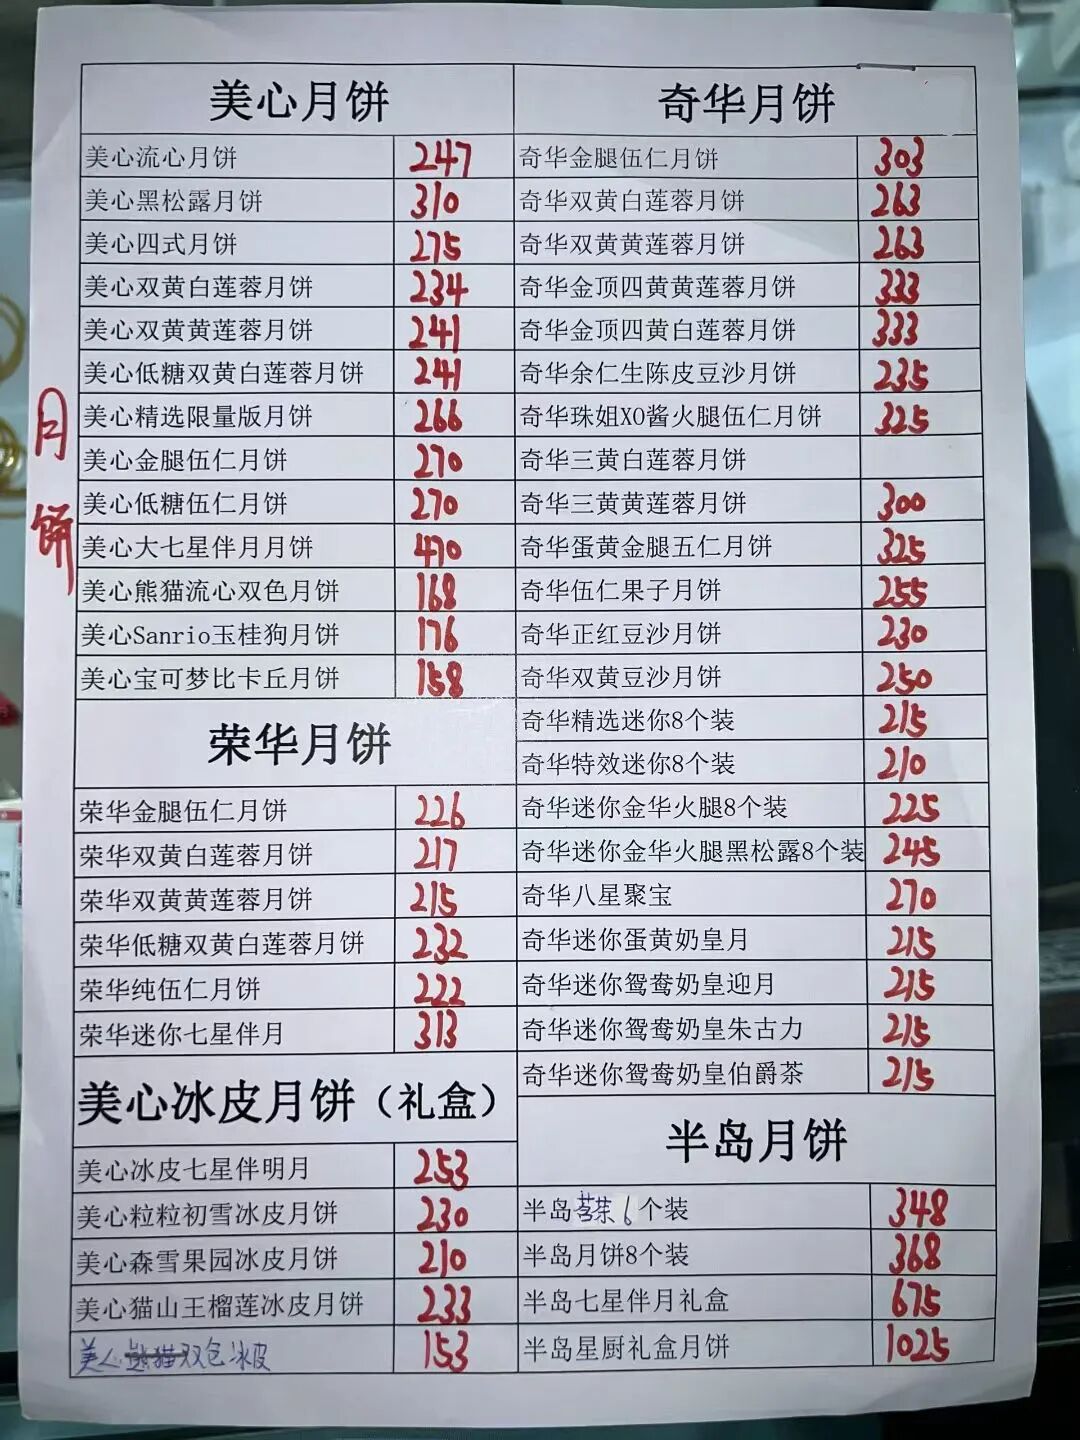 月饼
美心月饼
美心流心月饼 247
美心黑松露月饼 310
美心四式月饼 275
美心双黄白莲蓉月饼 234
美心双黄黄莲蓉月饼 241
美心低糖双黄白莲蓉月饼 241
美心精选限量版月饼 266
美心金腿伍仁月饼 270
美心低糖伍仁月饼 270
美心大七星伴月月饼 470
美心熊猫流心双色月饼 168
美心Sanrio玉桂狗月饼 176
美心宝可梦比卡丘月饼 158
荣华月饼
荣华金腿伍仁月饼 226
荣华双黄白莲蓉月饼 217
荣华双黄黄莲蓉月饼 215
荣华低糖双黄白莲蓉月饼 232
荣华纯伍仁月饼 222
荣华迷你七星伴月 313
美心冰皮月饼（礼盒）
美心冰皮七星伴明月 253
美心粒粒初雪冰皮月饼 230
美心森雪果园冰皮月饼 210
美心猫山王榴莲冰皮月饼 233
美心熊猫双包冰皮 153
奇华月饼
奇华金腿伍仁月饼 303
奇华双黄白莲蓉月饼 263
奇华双黄黄莲蓉月饼 263
奇华金顶四黄黄莲蓉月饼 333
奇华金顶四黄白莲蓉月饼 333
奇华余仁生陈皮豆沙月饼 235
奇华珠姐XO酱火腿伍仁月饼 325
奇华三黄白莲蓉月饼
奇华三黄黄莲蓉月饼 300
奇华蛋黄金腿五仁月饼 325
奇华伍仁果子月饼 255
奇华正红豆沙月饼 230
奇华双黄豆沙月饼 250
奇华精选迷你8个装 215
奇华特效迷你8个装 210
奇华迷你金华火腿8个装 225
奇华迷你金华火腿黑松露8个装 245
奇华八星聚宝 270
奇华迷你蛋黄奶皇月 215
奇华迷你鸳鸯奶皇迎月 215
奇华迷你鸳鸯奶皇朱古力 215
奇华迷你鸳鸯奶皇伯爵茶 215
半岛月饼
半岛 6个装 348
半岛月饼8个装 368
半岛七星伴月礼盒 675
半岛星厨礼盒月饼 1025